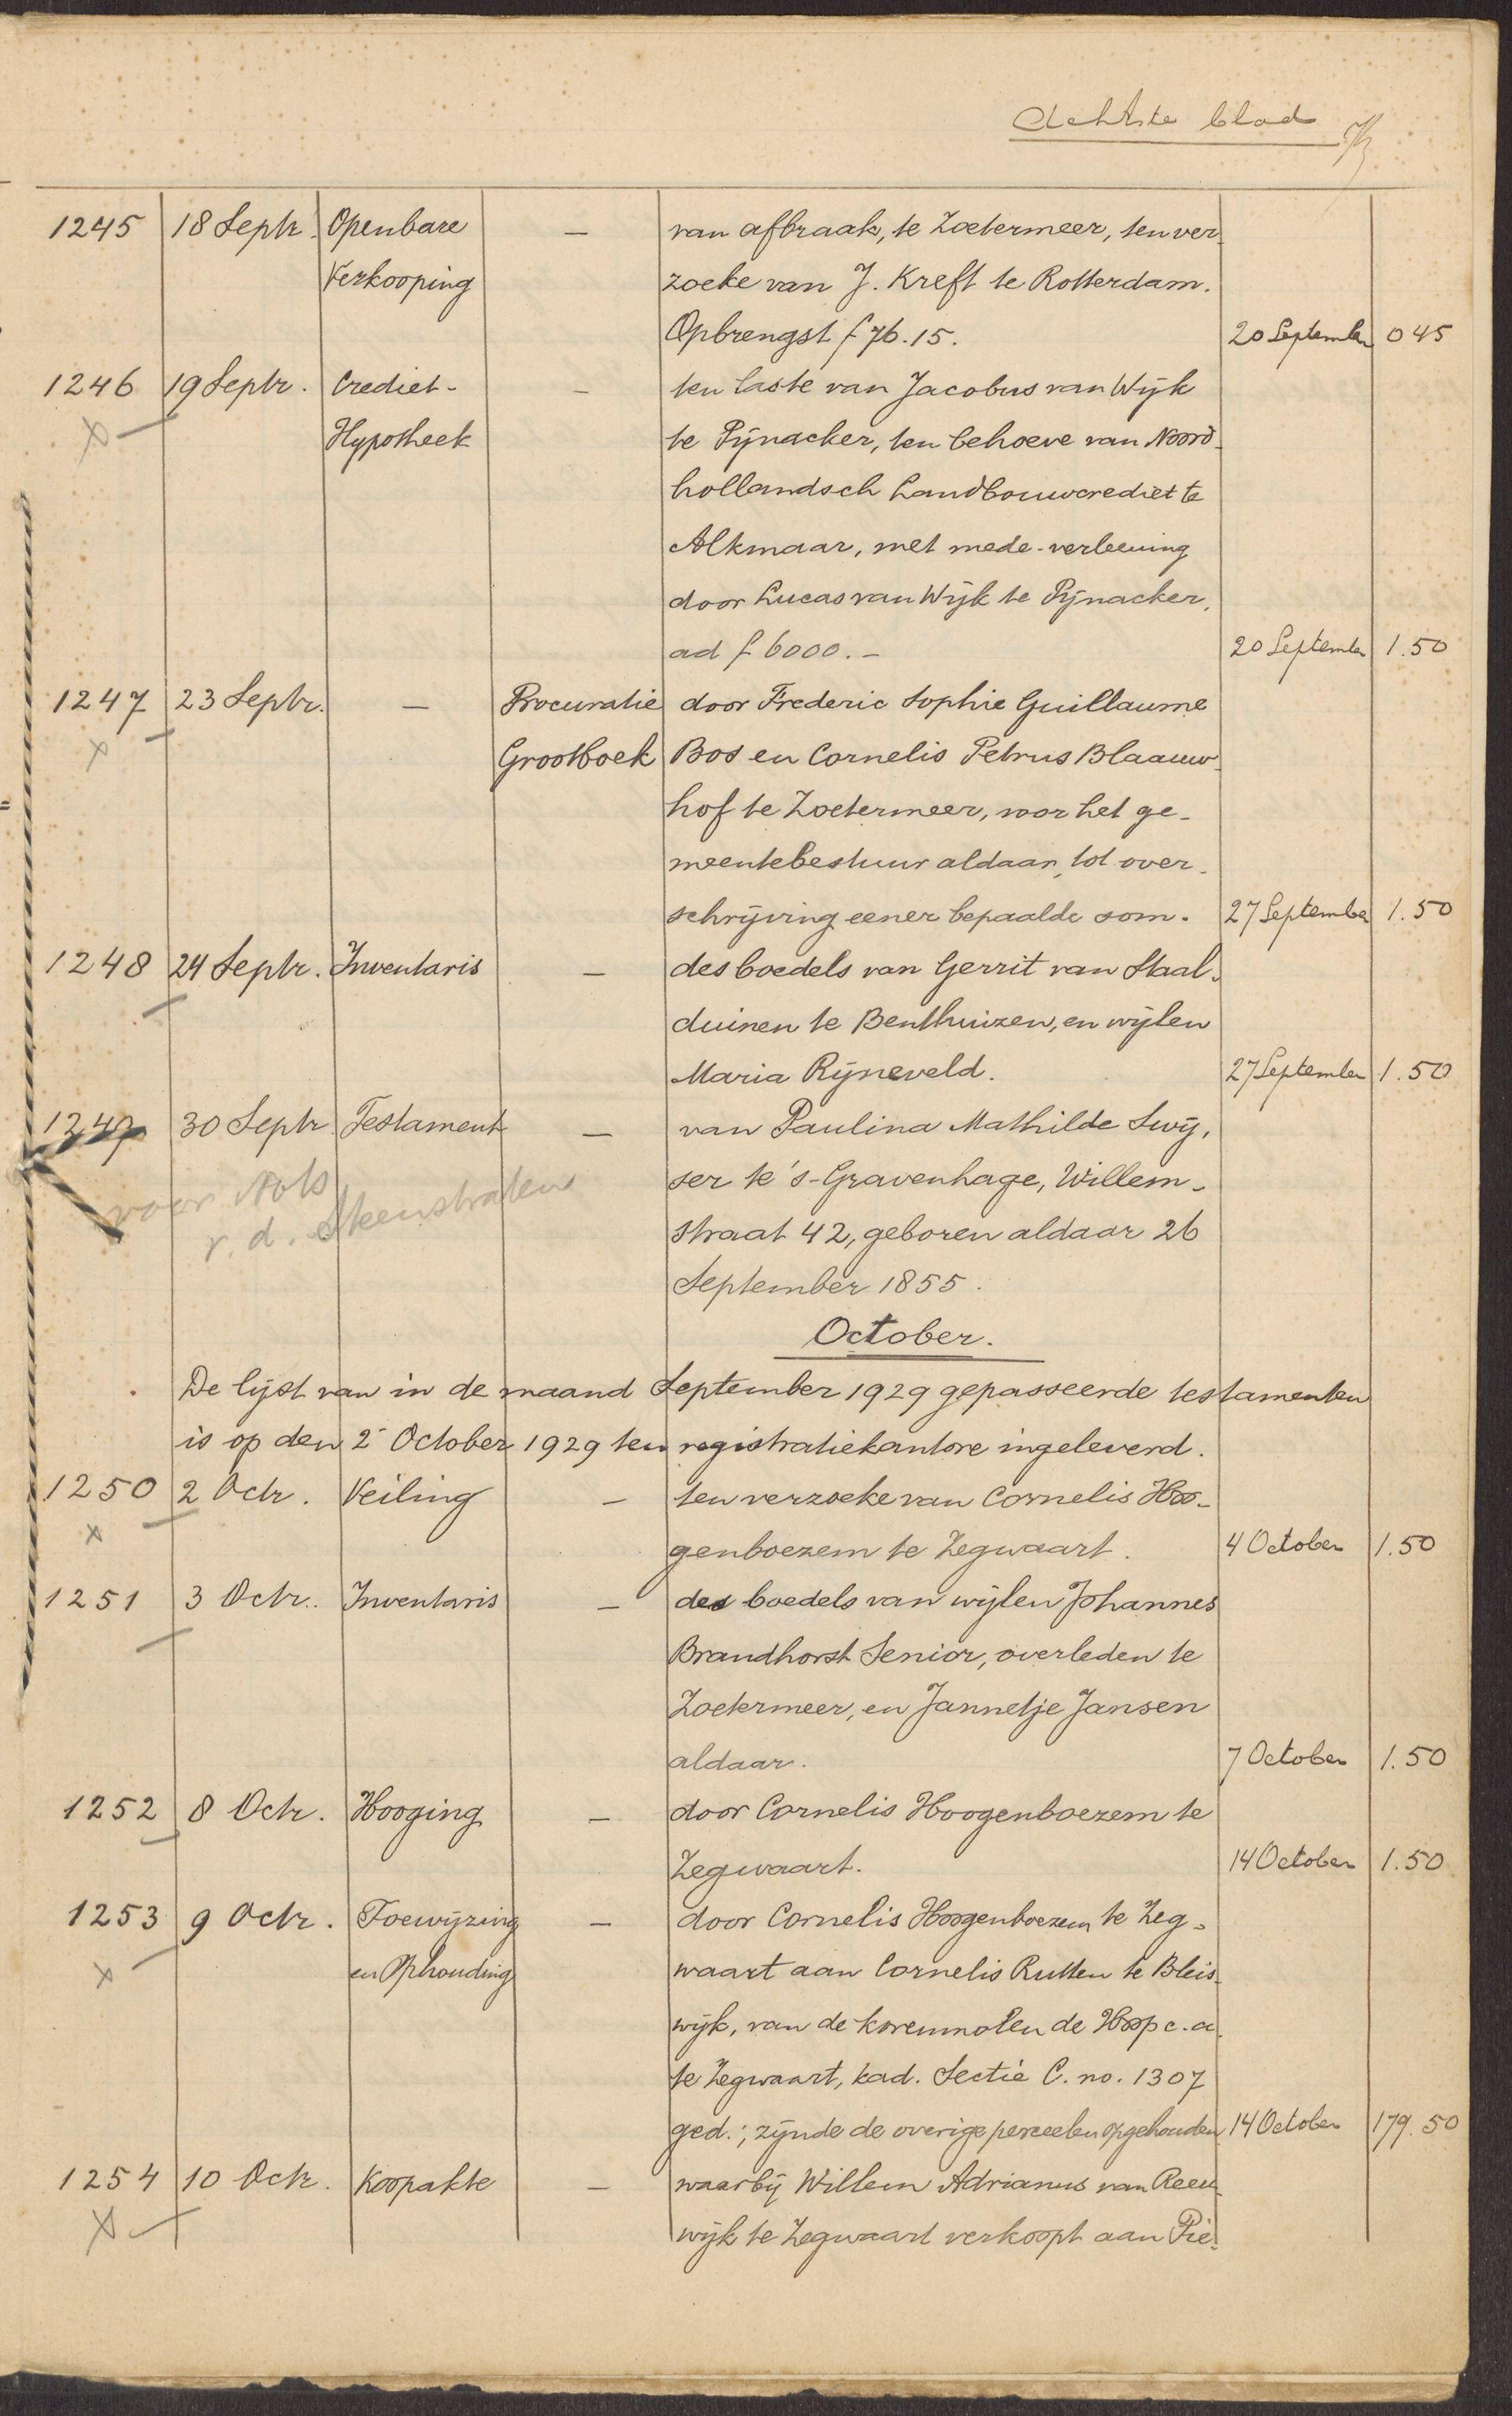 Achtste blad
1245 18 Septr. Openbare — van afbraak, te Zoetermeer, ten ver-
Verkooping zoeke van J. Kreft te Rotterdam.
Opbrengst f 76.15. 20 September 0 45
1246 19 Septr. Crediet- — ten laste van Jacobus van Wijk
Hypotheek te Pijnacker, ten behoeve van Noord-
hollandsch Landbouwcrediet te
Alkmaar, met mede-verleening
door Lucas van Wijk te Pijnacker,
ad f 6000.- 20 September 1.50
1247 23 Septr. — Procuratie door Frederic Sophie Guillaume
Grootboek Bos en Cornelis Petrus Blaauw-
hof te Zoetermeer, voor het ge-
meentebestuur aldaar, tot over-
schrijving eener bepaalde som. 27 September 1.50
1248 24 Septr. Inventaris — des boedels van Gerrit van Staal-
duinen te Benthuizen, en wijlen
Maria Rijneveld. 27 September 1.50
1247 30 Septr. Testament — van Paulina Mathilde Swij-
ser te 's-Gravenhage, Willem-
voor Nots
straat 42, geboren aldaar 26
v. d. Steenstraten
September 1855.
October.
De lijst van in de maand September 1929 gepasseerde testamenten
is op den 2 October 1929 ten registratiekantore ingeleverd.
1250 2 Octr. Veiling — ten verzoeke van Cornelis Hoo-
genboezem te Zegwaart. 4 October 1.50
1251 3 Octr. Inventaris — des boedels van wijlen Johannes
Brandhorst Senior, overleden te
Zoetermeer, en Jannetje Jansen
aldaar. 7 October 1.50
1252 8 Octr. Hooging — door Cornelis Hoogenboezem te
Zegwaart. 14 October 1.50
1253 9 Octr. Toewijzing — door Cornelis Hoogenboezem te Zeg-
en Ophouding waart aan Cornelis Rutten te Bleis-
wijk, van de korenmolen de Hoop c.a.
te Zegwaart, kad. Sectie C. no. 1307
ged.; zijnde de overige perceelen opgehouden 14 October 179.50
1254 10 Octr. Koopakte — waarbij Willem Adrianus van Reeu-
wijk te Zegwaart verkoopt aan Pie-